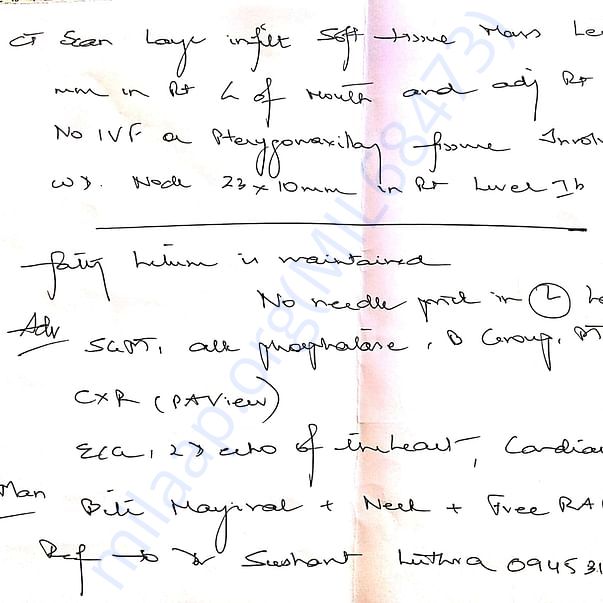 CT Scan Large infilt Soft tissue Mass Le
mm in Rt L of Mouth and adj Rt
No IVF or Pterygomaxillary fissure Involv
Node 23 x 10mm in Rt Level Ib
fatty hilum is maintained
No needle prick in L
Adv
SGPT, alk phosphatase, B Group, PT
CXR (PA View)
ECG, 2D echo of the heart, Cardiac
Plan
Bite + Neck + Free RA
Ref → Dr Sushant Luthra 094531
milaap.org(MIL68473)